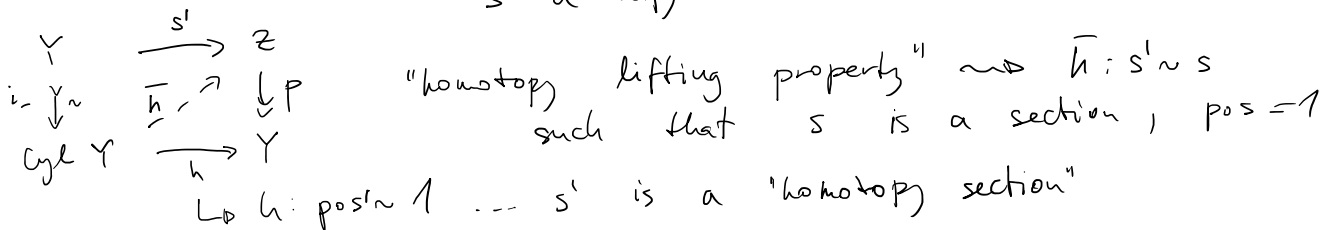 Y s' Z
i_ ~ h̄ p "homotopy lifting property" ⇝ h̄ : s' ~ s
Cyl Y h Y such that s is a section, p∘s = 1
↳ h : p∘s' ~ 1 ... s' is a "homotopy section"